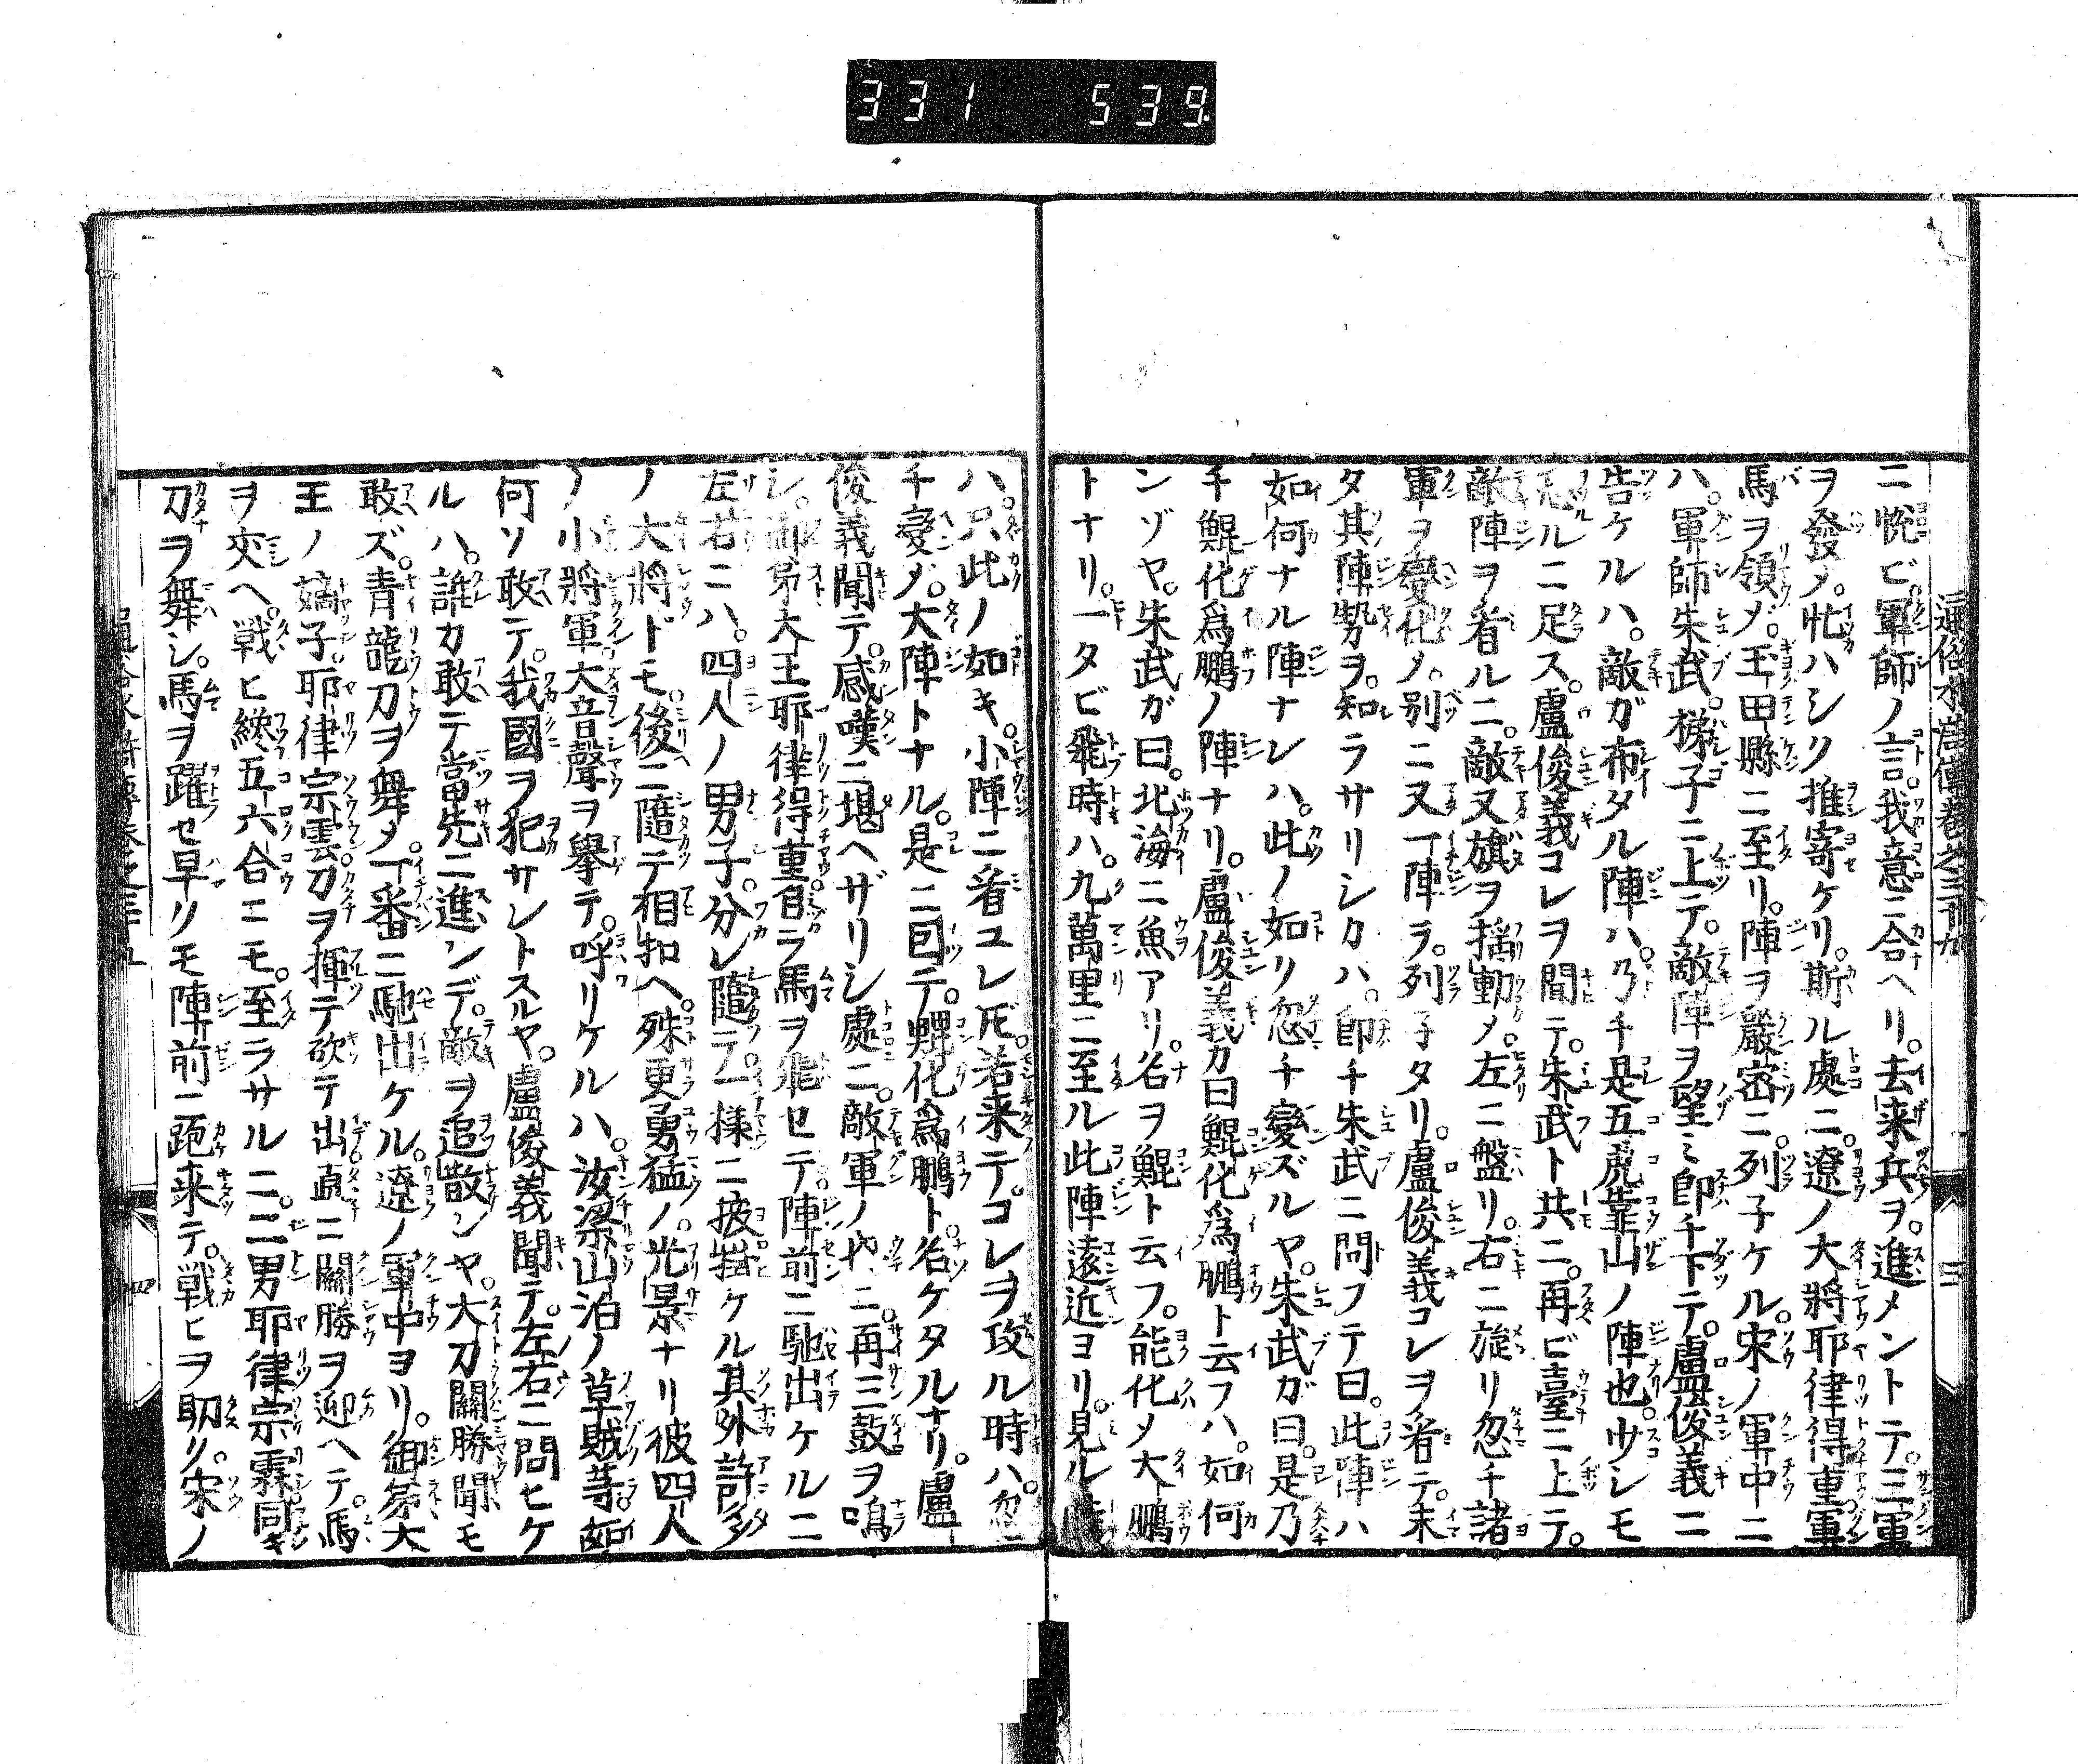 331 539
通俗水滸傳巻之三十九
ニ悦ビ。軍師ノ言。我意ニ合ヘリ。去来兵ヲ。進メントテ。三軍
ヲ發メ。忙ハシク推寄ケリ。斯ル處ニ。遼ノ大將耶律得重軍
馬ヲ領メ。玉田縣ニ至リ。陣ヲ嚴密ニ。列子ケル。宋ノ軍中ニ
ハ。軍師朱武。梯子ニ上テ。敵陣ヲ望ミ即チ下テ。盧俊義ニ
告ケルハ。敵ガ布タル陣ハ。乃チ是五虎靠山ノ陣也。少シモ
恐ルニ足ス。盧俊義コレヲ聞テ。朱武ト共ニ。再ビ臺ニ上テ。
敵陣ヲ看ルニ。敵又旗ヲ揺動メ。左ニ盤リ。右ニ旋リ忽チ諸
軍ヲ變化メ。別ニ又一陣ヲ。列子タリ。盧俊義コレヲ看テ。未
タ其陣勢ヲ。知ラサリシカハ。即チ朱武ニ問フテ曰。此陣ハ
如何ナル陣ナレハ。此ノ如ク忽チ變ズルヤ。朱武ガ曰。是乃
チ鯤化爲鵬ノ陣ナリ。盧俊義カ曰鯤化爲鵬ト云フハ。如何
ンゾヤ。朱武ガ曰。北海ニ魚アリ。名ヲ鯤ト云フ。能化メ大鵬
トナリ。一タビ飛時ハ。九萬里ニ至ル此陣遠近ヨリ。見ル時
ハ。只此ノ如キ。小陣ニ看ユレ𪜈。若来テ。コレヲ攻ル時ハ。忽
チ變メ。大陣トナル。是ニ因テ。鯤化爲鵬ト。名ケタルナリ。盧
俊義聞テ。感嘆ニ堪ヘザリシ處ニ。敵軍ノ中ニ。再三鼓ヲ鳴
シ。御弟大王耶律得重自ラ馬ヲ飛セテ。陣前ニ馳出ケルニ
左右ニハ。四人ノ男子。分レ隨テ。一様ニ披掛ケル其外許多
ノ大將ドモ。後ニ隨テ相扣ヘ。殊更勇猛ノ。光景ナリ彼四人
ノ小將軍大音聲ヲ擧テ。呼リケルハ。汝梁山泊ノ草賊等。如
何ソ敢テ。我國ヲ犯サントスルヤ。盧俊義聞テ。左右ニ問ヒケ
ルハ。誰カ敢テ當先ニ進ンデ。敵ヲ追散ンヤ。大刀關勝聞モ
敢ズ。青龍刀ヲ舞メ。一番ニ馳出ケル。遼ノ軍中ヨリ。御弟大
王ノ嫡子。耶律宗雲刀ヲ揮テ砍テ出直ニ關勝ヲ迎ヘテ。馬
ヲ交ヘ。戦ヒ纔五六合ニモ。至ラサルニ。二男耶律宗霖同キ
刀ヲ舞シ。馬ヲ躍セ早クモ陣前ニ跑来テ。戦ヒヲ助ク。宋ノ
四